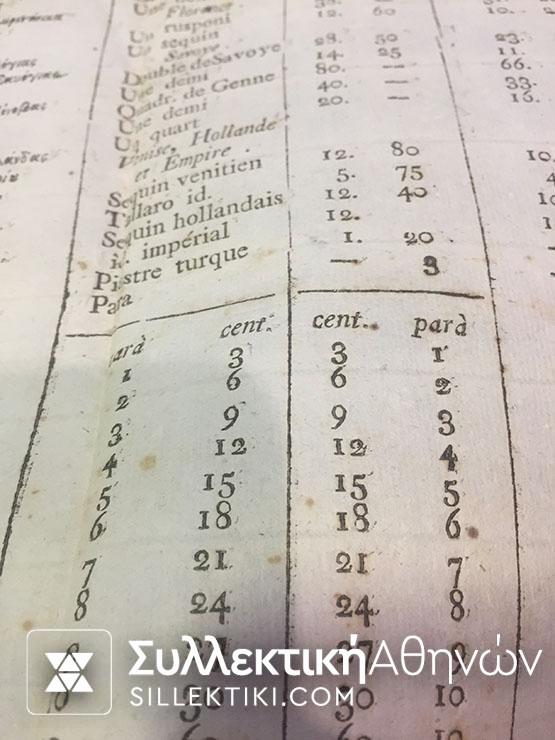 Une Florence 12. 60 10.
Un rusponi
Un sequin 28. 50 23.
Savoye 14 25 11.
Double de Savoye 80. — 66.
Une demi 40. — 33.
Quadr. de Genne 20. — 16.
Une demi
Un quart
Venise, Hollande
et Empire.
Sequin venitien 12. 80 10.
Tallaro id. 5. 75 4
Sequin hollandais 12. 40
id. impérial 12.
Piastre turque 1. 20
Para — 3
parà cent. cent. parà
1 3 3 1
2 6 6 2
3 9 9 3
4 12 12 4
5 15 15 5
6 18 18 6
7 21 21 7
8 24 24 8
9 27 27 9
10 30 30 10
ΣυλλεκτικήΑθηνών
SILLEKTIKI.COM